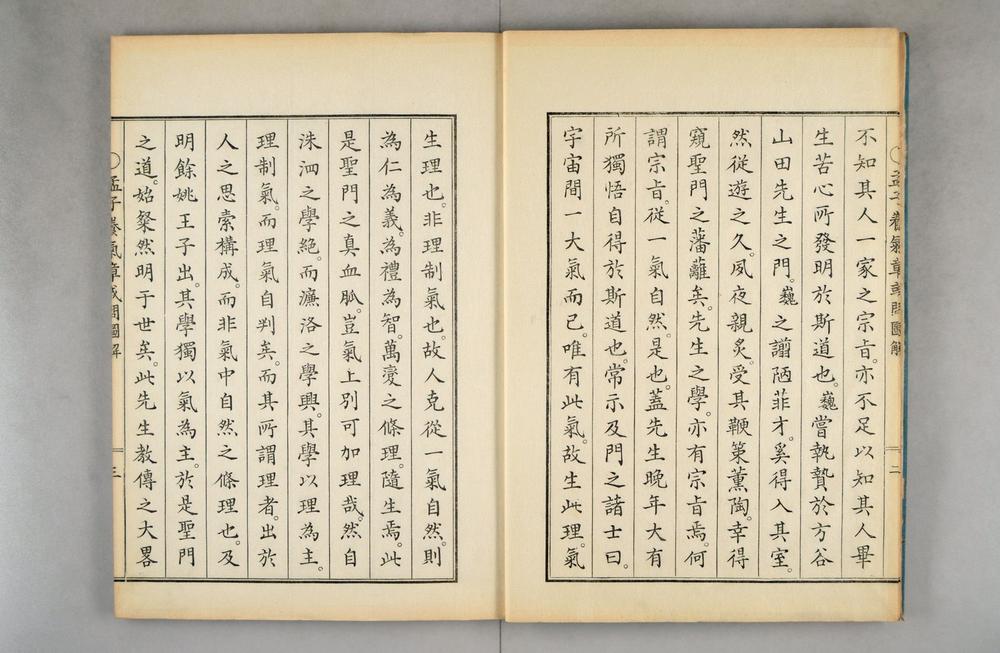 不知其人一家之宗旨。亦不足以知其人畢
生苦心所發明於斯道也。巍嘗執贄於方谷
山田先生之門。巍之謭陋菲才。奚得入其室。
然從遊之久。夙夜親炙。受其鞭策薰陶。幸得
窺聖門之藩蘺矣。先生之學。亦有宗旨焉。何
謂宗旨。從一氣自然。是也。蓋先生晚年大有
所獨悟自得於斯道也。常示及門之諸士曰。
宇宙間一大氣而已。唯有此氣。故生此理。氣
孟子養氣章或問圖解
二
生理也。非理制氣也。故人克從一氣自然。則
為仁為義。為禮為智。萬變之條理。隨生焉。此
是聖門之真血脈。豈氣上別可加理哉。然自
洙泗之學絕。而濂洛之學興。其學以理為主。
理制氣。而理氣自判矣。而其所謂理者。出於
人之思索構成。而非氣中自然之條理也。及
明餘姚王子出。其學獨以氣為主。於是聖門
之道。始粲然明于世矣。此先生教傳之大畧
孟子養氣章或問圖解
三